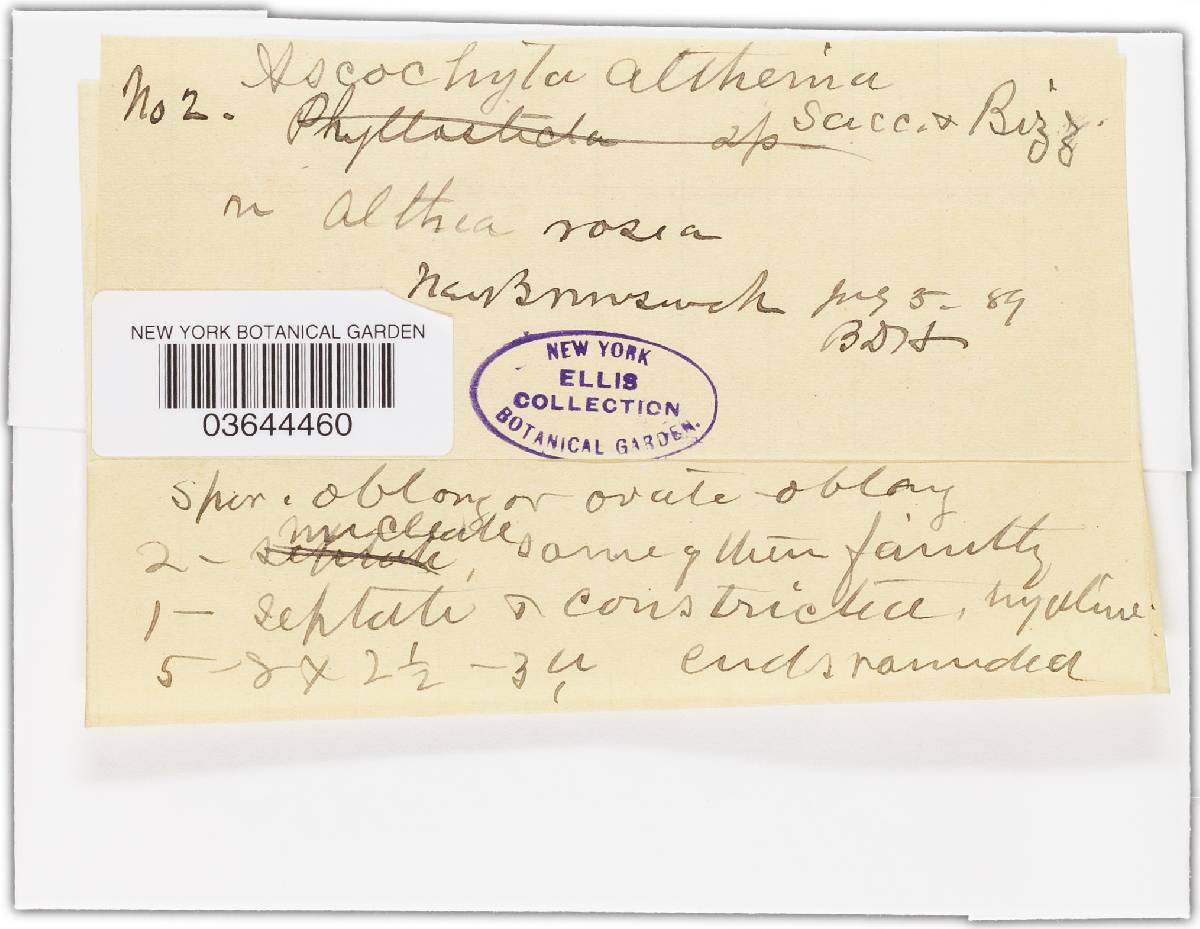 Ascochyta altheina
No 2. Phyllosticta sp Sacc. & Bizz.
n Althea rosea
New Brunswick 5 - 89
BDH
NEW YORK BOTANICAL GARDEN
03644460
NEW YORK
ELLIS
COLLECTION
BOTANICAL GARDEN.
Spor. oblong or ovate-oblong
nucleate
2- septate, some of them faintly
1- septate & constricted, hyaline.
5-8 x 2½-3µ ends rounded